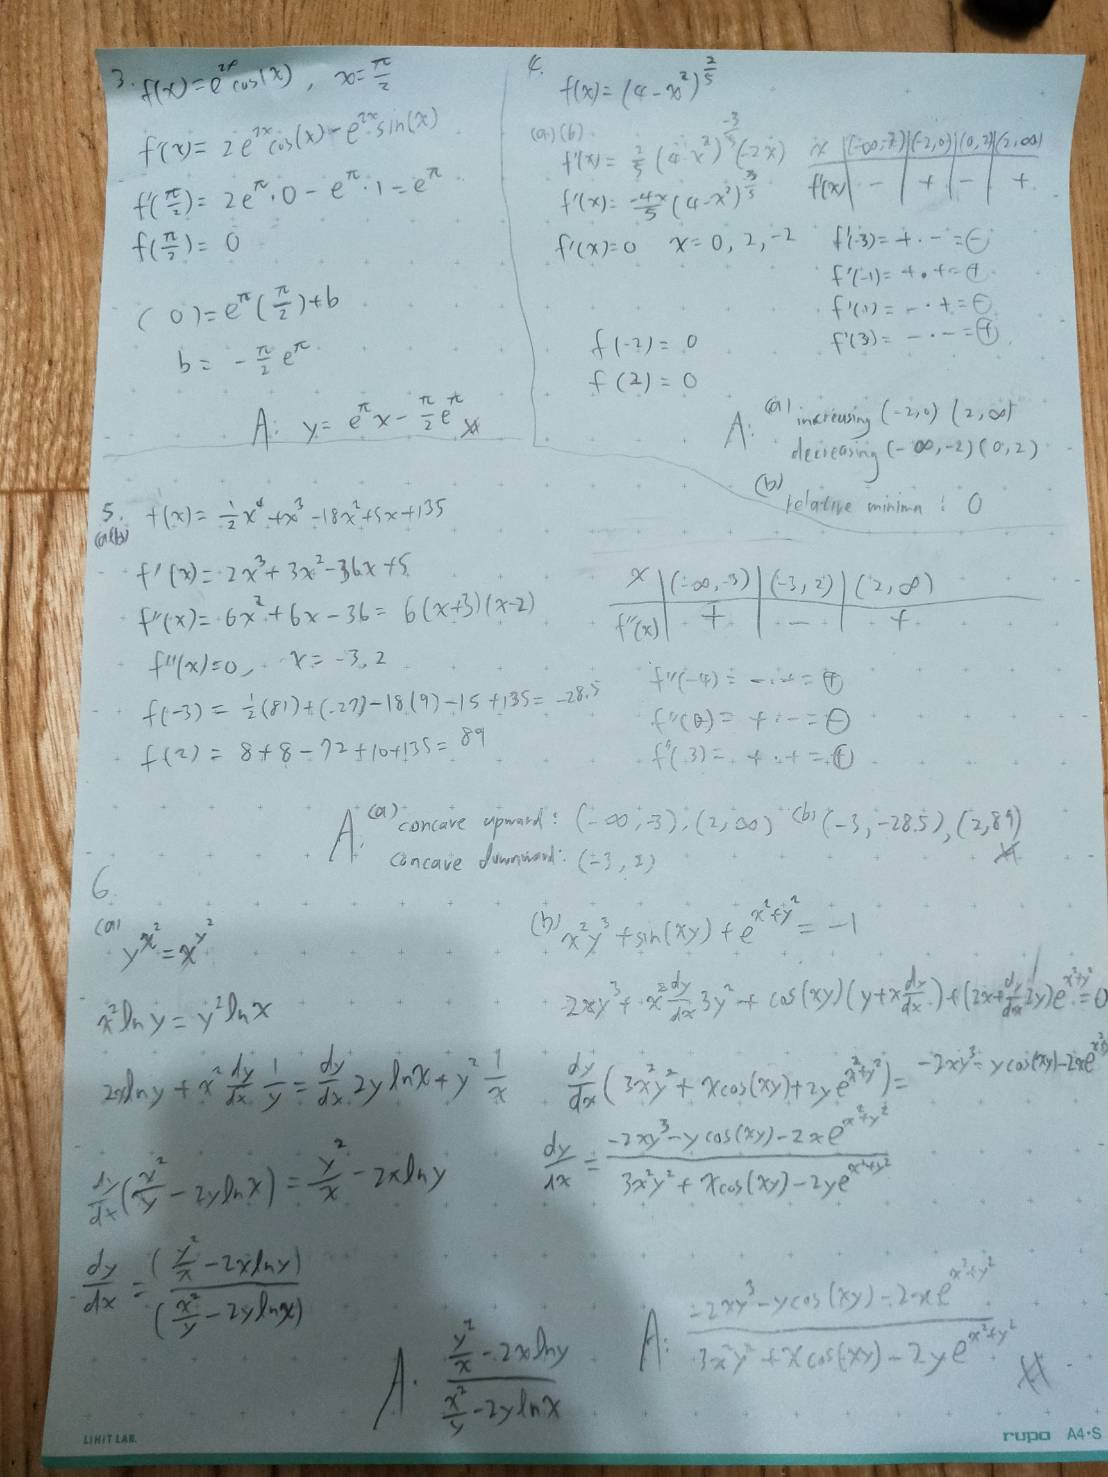 3. f(x)=e^{2x}cos(x), x=π/2
f'(x)=2e^{2x}cos(x)-e^{2x}sin(x)
f'(π/2)=2e^π·0-e^π·1=e^π
f(π/2)=0
(0)=e^π(π/2)+b
b=-π/2 e^π
A: y=e^π x-π/2 e^π
4.
f(x)=(4-x²)^{2/5}
(a)(b)
f'(x)=2/5(4-x²)^{-3/5}(-2x)
f'(x)=-4x/5(4-x²)^{3/5}
f'(x)=0 x=0, 2, -2
f(-2)=0
f(2)=0
x (-∞,-2) (-2,0) (0,2) (2,∞)
f'(x) - + - +
f'(-3)=+·-=⊖
f'(-1)=+·+=⊕
f'(1)=-·+=⊖
f'(3)=-·-=⊕
A: (a) increasing (-2,0) (2,∞)
decreasing (-∞,-2) (0,2)
(b) relative minima: 0
5. f(x)=½x⁴+x³-18x²+5x+135
(a)(b)
f'(x)=2x³+3x²-36x+5
f''(x)=6x²+6x-36=6(x+3)(x-2)
f''(x)=0, x=-3, 2
f(-3)=½(81)+(-27)-18(9)-15+135=-28.5
f(2)=8+8-72+10+135=89
x (-∞,-3) (-3,2) (2,∞)
f''(x) + - +
f''(-4)=-·-=⊕
f''(0)=+·-=⊖
f''(3)=+·+=⊕
A: (a) concave upward: (-∞,-3), (2,∞) (b) (-3,-28.5), (2,89)
concave downward: (-3,2)
6
(a)
y^{x²}=x^{y²}
x² ln y=y² ln x
2x ln y+x² dy/dx 1/y=dy/dx 2y ln x+y² 1/x
dy/dx(x²/y-2y ln x)=y²/x-2x ln y
dy/dx=(y²/x-2x ln y)/(x²/y-2y ln x)
A. (y²/x-2x ln y)/(x²/y-2y ln x)
(b) x²y³+sin(xy)+e^{x²+y²}=-1
2xy³+x² dy/dx 3y²+cos(xy)(y+x dy/dx)+(2x+dy/dx 2y)e^{x²+y²}=0
dy/dx(3x²y²+xcos(xy)+2ye^{x²+y²})=-2xy³-ycos(xy)-2xe^{x²+y²}
dy/dx=(-2xy³-ycos(xy)-2xe^{x²+y²})/(3x²y²+xcos(xy)-2ye^{x²+y²})
A: (-2xy³-ycos(xy)-2xe^{x²+y²})/(3x²y²+xcos(xy)-2ye^{x²+y²})
LIHIT LAB.
rupo A4·S